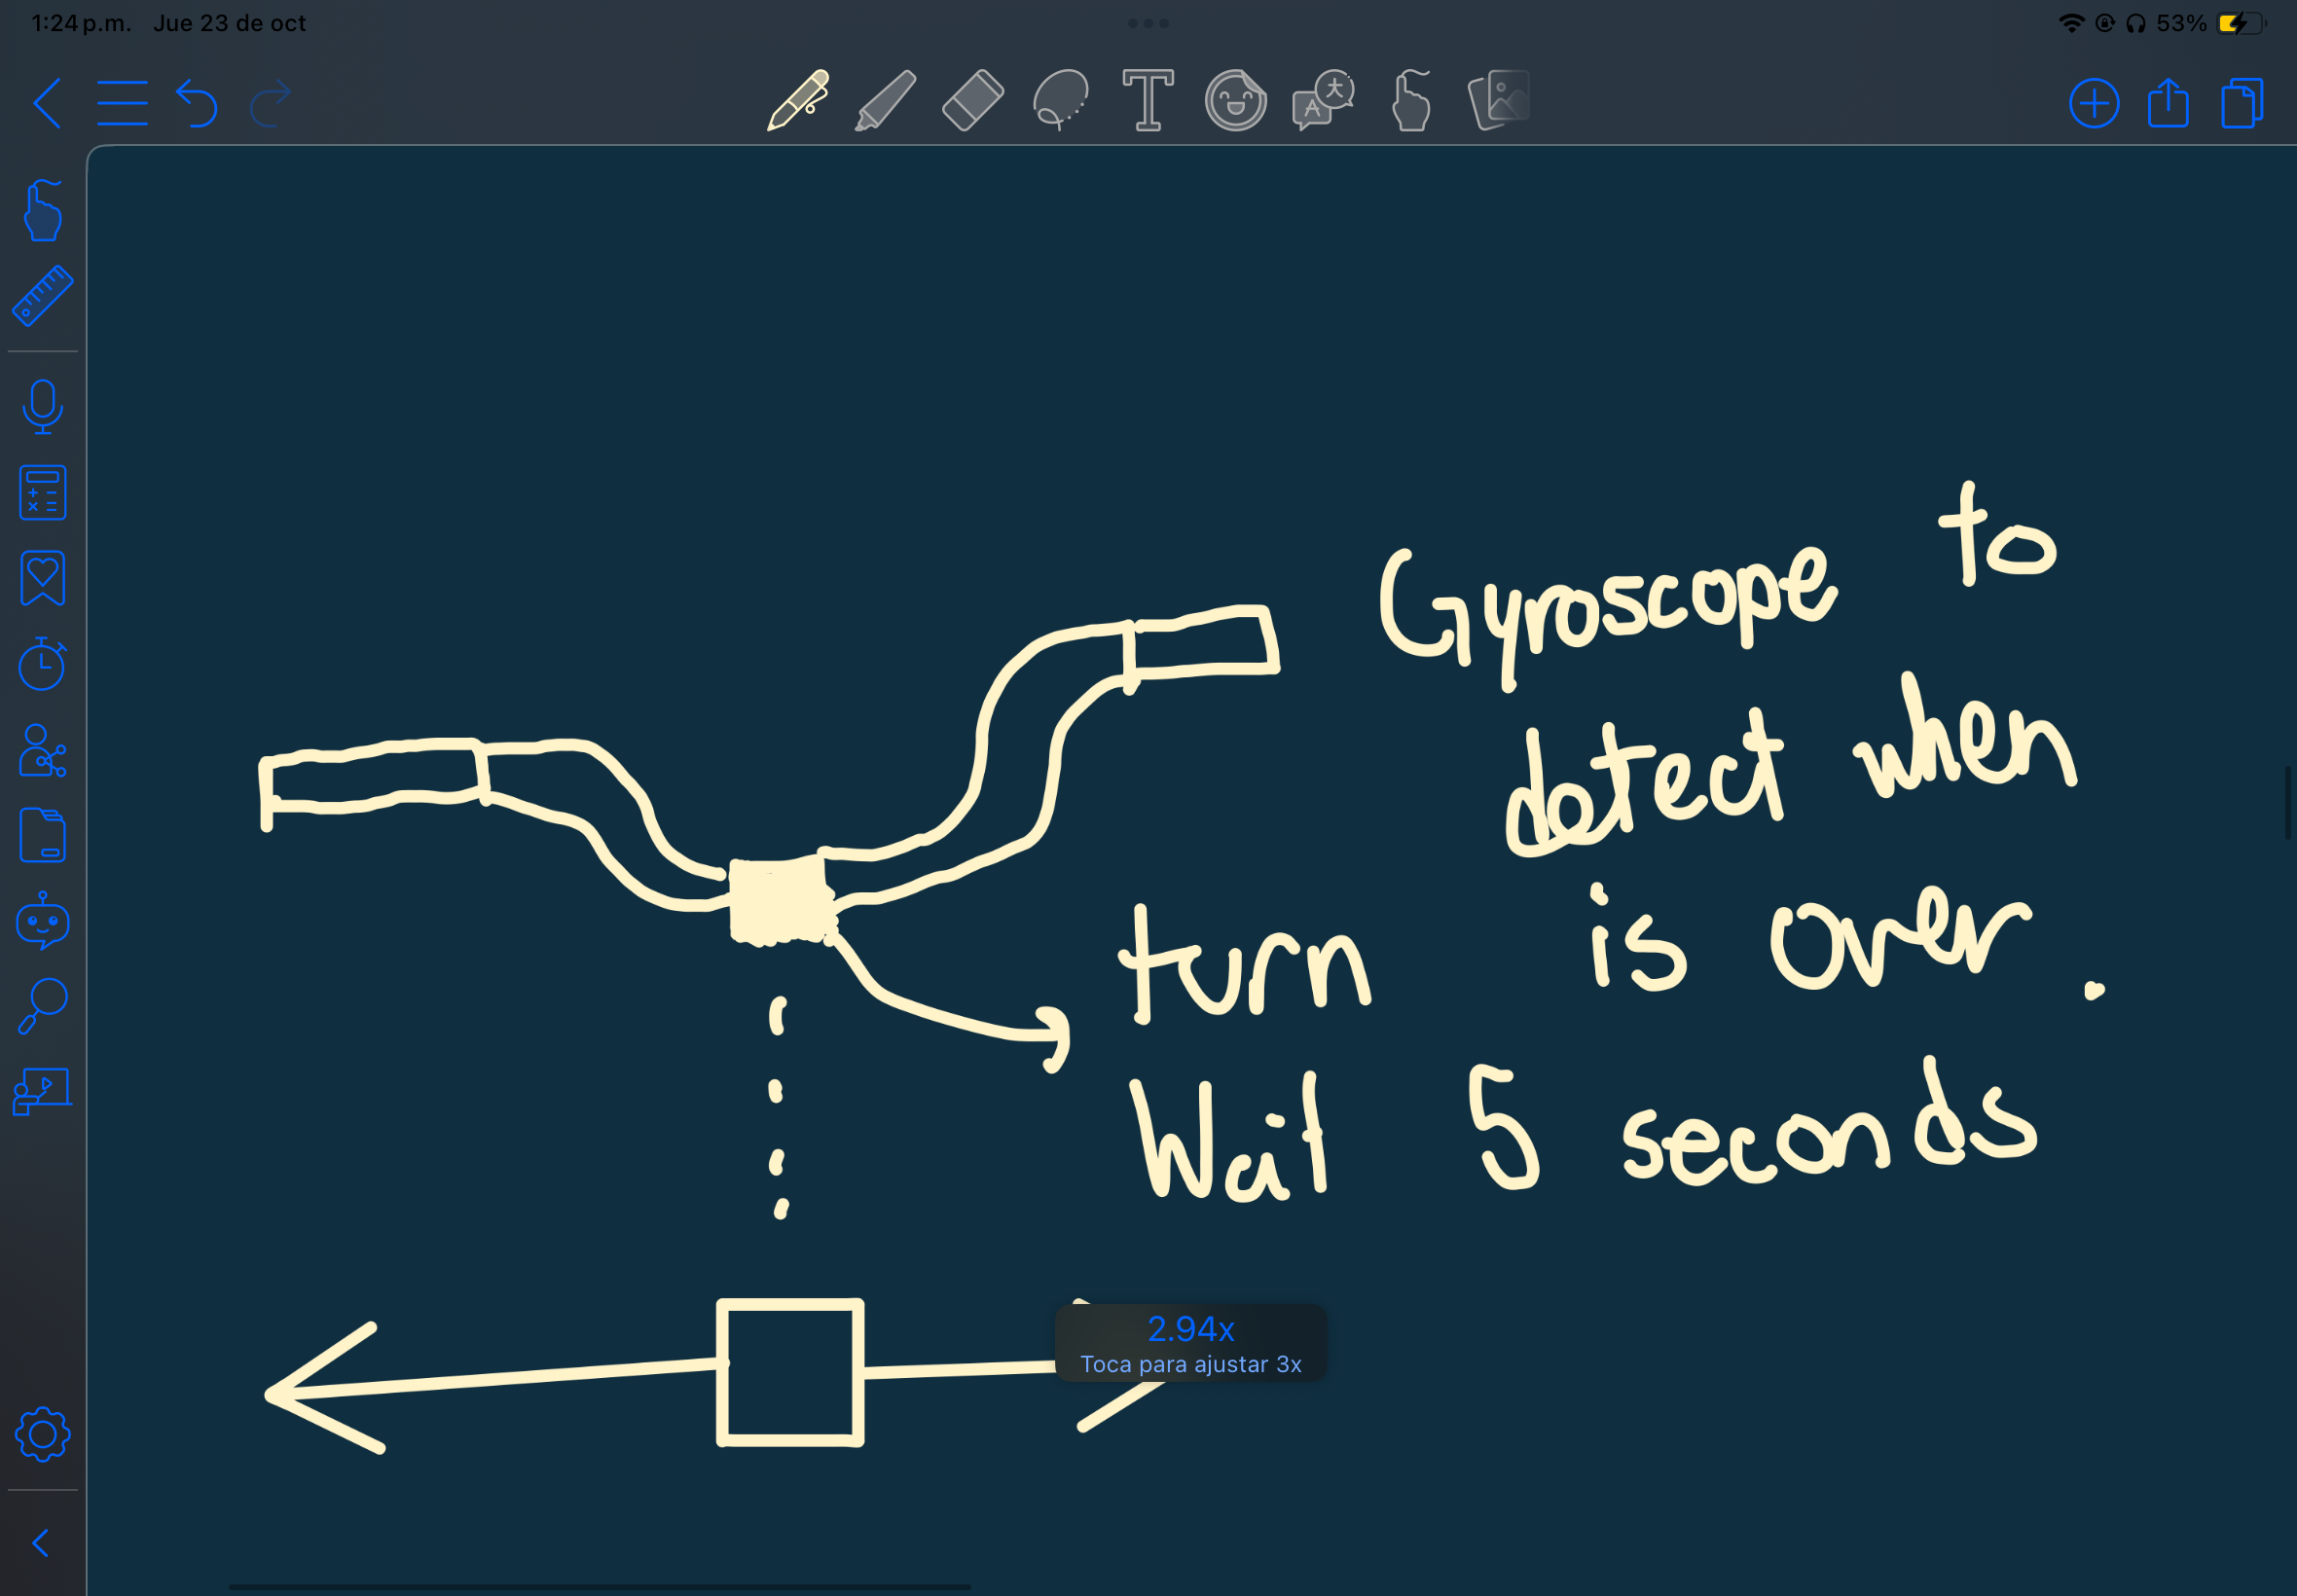 1:24 p.m. Jue 23 de oct
53%
Gyroscope to
detect when
turn is over.
Wait 5 seconds
2.94x
Toca para ajustar 3x